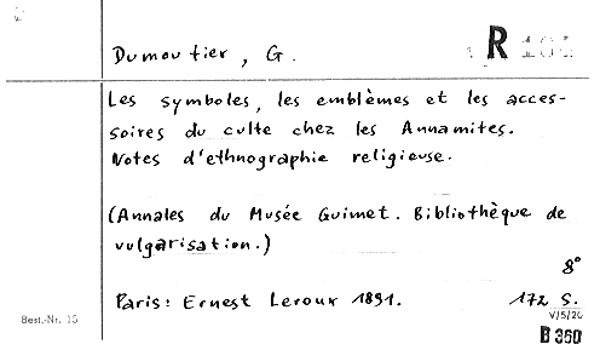 Dumoutier, G. R 101
Les symboles, les emblèmes et les acces-
soires du culte chez les Annamites.
Notes d'ethnographie religieuse.
(Annales du Musée Guimet. Bibliothèque de
vulgarisation.)
8°
Paris: Ernest Leroux 1891. 172 S.
Best.-Nr. 15 V/5/20
B 360